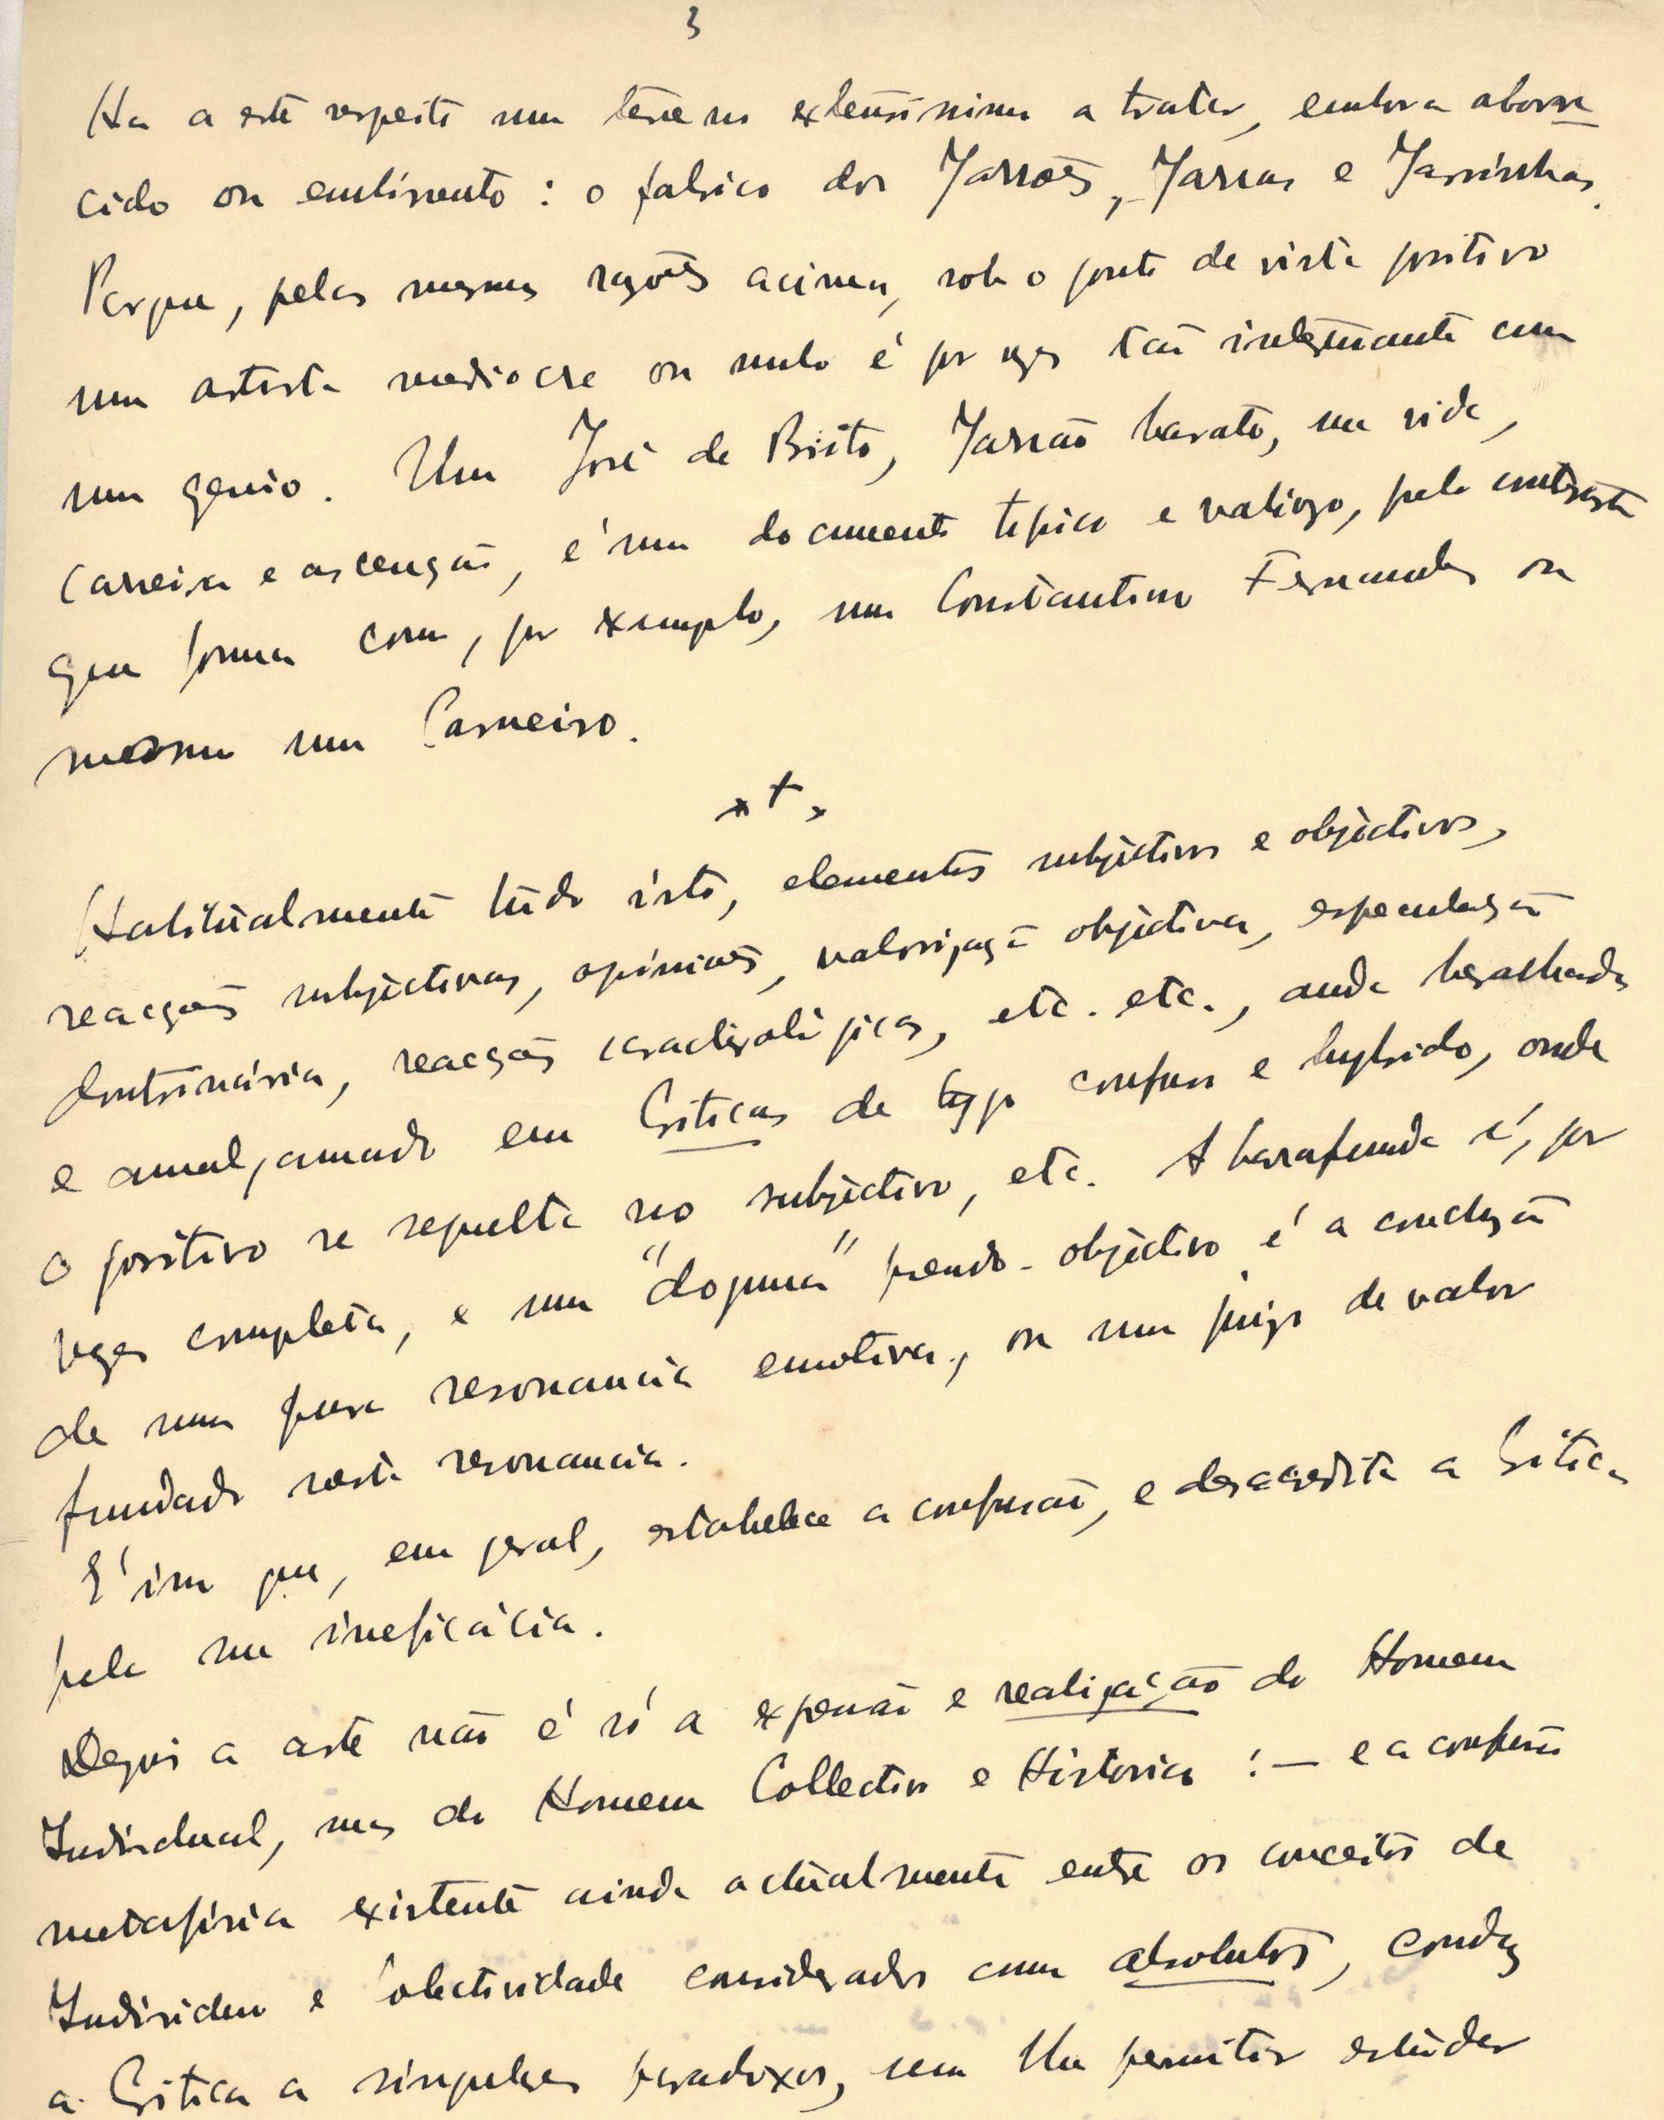 3
Ha a este respeito um terreno extensissimo a tratar, embora aborre
cido ou enublinento: o fabrico dos Jarrões, Jarras e Jarrinhas.
Porque, pelas mesmas razões acima, sob o ponto de vista positivo
um artista mediocre ou nulo é por vezes tão interessante como
um genio. Um José de Brito, Jarrão barato, na vida,
carreira e ascenção, é um documento tipico e valiozo, pelo contraste
que forma com, por exemplo, um Constantino Fernandes ou
mesmo um Carneiro.
***
Habitualmente tudo isto, elementos subjectivos e objectivos,
reacções subjectivas, opiniões, valorização objectiva, especulação
doutrinária, reacções caracterológicas, etc. etc., anda baralhado
e amalgamado em Criticas de typo confuso e hybrido, onde
o positivo se sepulta no subjectivo, etc. A barafunda é, por
vezes completa, e um "dogma" pseudo-objectivo é a conclusão
de uma pura resonancia emotiva, ou um juizo de valor
fundado nesta resonancia.
É isso que, em geral, estabelece a confusão, e desacredita a Critica
pela sua ineficácia.
Depois a arte não é só a expansão e realização do Homem
Individual, mas do Homem Collectivo e Historico: — e a confusão
metafisica existente ainda actualmente entre os conceitos de
Individuo e Colectividade considerados como absolutos, conduz
a Critica a singulares paradoxos, sem lhe permitir estudar